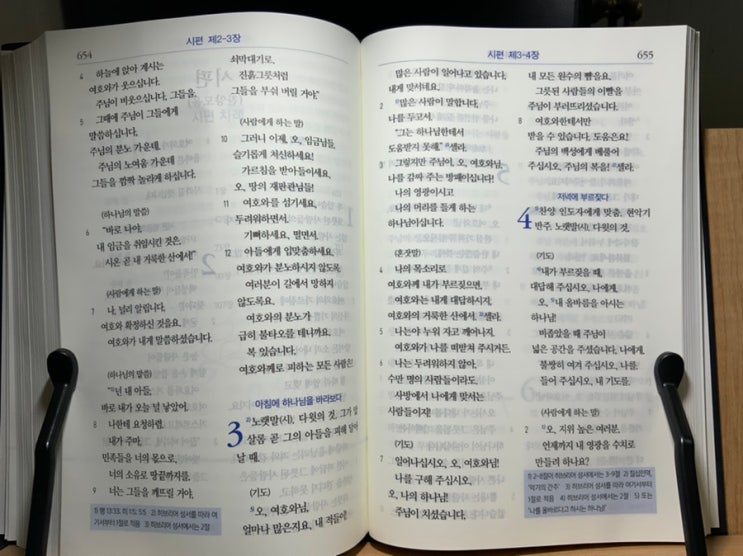 654
시편 제2-3장
4 하늘에 앉아 계시는
여호와가 웃으십니다.
주님이 비웃으십니다, 그들을.
5 그때에 주님이 그들에게
말씀하십니다.
주님의 분노 가운데,
주님의 노여움 가운데
그들을 깜짝 놀라게 하십니다.
(하나님의 말씀)
6 "바로 나야,
내 임금을 취임시킨 것은,
시온 곧 내 거룩한 산에서!"
(사람에게 하는 말)
7 나, 널리 알립니다,
여호와 확정하신 것을요.
여호와가 내게 말씀하셨습니다.
(하나님의 말씀)
"넌 내 아들,
바로 내가 오늘 널 낳았어.
8 나한테 요청하렴,
내가 주마,
민족들을 너의 몫으로,
너의 소유로 땅끝까지를.
9 너는 그들을 깨뜨릴 거야,
쇠막대기로,
진흙그릇처럼
그들을 부숴 버릴 거야."
(사람에게 하는 말)
10 그러니 이제, 오, 임금님들,
슬기롭게 처신하세요!
가르침을 받아들이세요,
오, 땅의 재판관님들!
11 여호와를 섬기세요,
두려워하면서.
기뻐하세요, 떨면서.
12 아들에게 입맞춤하세요,
여호와가 분노하시지 않도록,
여러분이 길에서 망하지
않도록요.
여호와의 분노가
급히 불타오를 테니까요.
복 있습니다,
여호와께로 피하는 모든 사람은
아침에 하나님을 바라보다
3 2)노랫말(시). 다윗의 것. 그가 압
살롬 곧 그의 아들을 피해 달아
날 때.
(기도)
오, 여호와님,
얼마나 많은지요, 내 적들이!
1) 행 13:33, 히 1:5; 5:5 2) 히브리어 성서를 따라 여
기서부터 1절로 적음 3) 히브리어 성서에서는 2절
시편 제3-4장
655
많은 사람이 일어나고 있습니다,
내게 맞서네요.
2 많은 사람이 말합니다,
나를 두고서.
"그는 하나님한테서
도움받지 못해." 셀라.
3 그렇지만 주님이, 오, 여호와님,
나를 감싸 주는 방패이십니다!
나의 영광이시고
나의 머리를 들게 하는
하나님이십니다.
(혼잣말)
4 나의 목소리로
여호와께 내가 부르짖으면,
여호와는 내게 대답하시지,
여호와의 거룩한 산에서. 셀라.
5 나는야 누워 자고 깨어나지,
여호와가 나를 떠받쳐 주시거든.
6 나는 두려워하지 않아,
수만 명의 사람들이라도,
사방에서 나에게 맞서는
사람들이지!
(기도)
7 일어나십시오, 오, 여호와님!
나를 구해 주십시오,
오, 나의 하나님!
주님이 치셨습니다,
내 모든 원수의 뺨을요.
그릇된 사람들의 이빨을
주님이 부러뜨리셨습니다.
8 여호와한테서만
받을 수 있습니다, 도움은요!
주님의 백성에게 베풀어
주십시오, 주님의 복을! 셀라.
저녁에 부르짖다
4 찬양 인도자에게 맞춤. 현악기
반주. 노랫말(시). 다윗의 것.
(기도)
내가 부르짖을 때,
대답해 주십시오, 나에게,
오, 내 올바름을 아시는
하나님!
비좁았을 때 주님이
넓은 공간을 주셨습니다, 나에게.
불쌍히 여겨 주십시오, 나를.
들어 주십시오, 내 기도를.
(사람에게 하는 말)
2 오, 지위 높은 여러분,
언제까지 내 영광을 수치로
만들려 하나요?
1) 2-8절이 히브리어 성서에서는 3-9절 2) 칠십인역,
'악기의 간주' 3) 히브리어 성서를 따라 여기서부터
1절로 적음 4) 히브리어 성서에서는 2절 5) 또는
'나를 올바르다고 하시는 하나님'